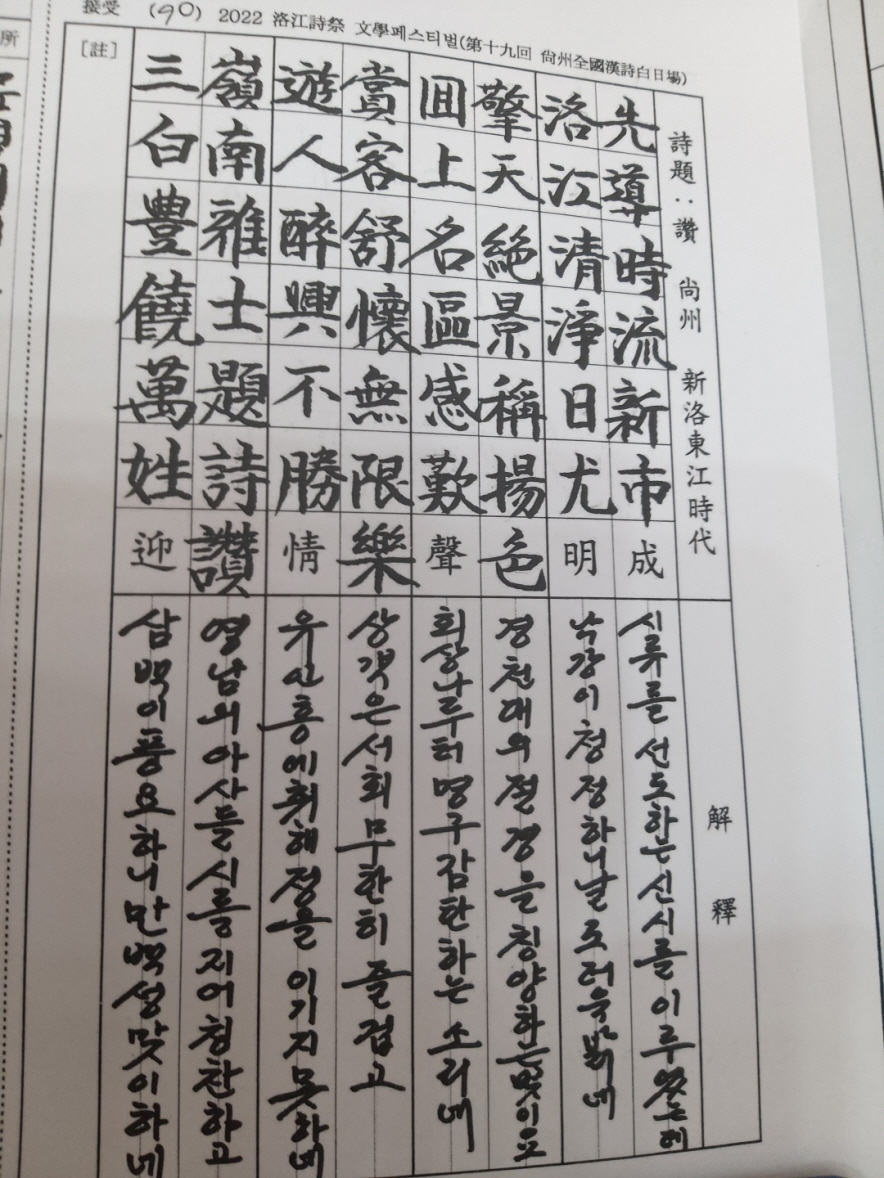 接受 (90) 2022 洛江詩祭 文學페스티벌(第十九回 尙州全國漢詩白日場)
[註]
詩題 : 讚 尙州 新洛東江時代
先導時流新市成
洛江清淨日尤明
擎天絶景稱揚色
囬上名區感歎聲
賞客舒懷無限樂
遊人醉興不勝情
嶺南雅士題詩讚
三白豐饒萬姓迎
解釋
시류를 선도하는 신시를 이루었는데
낙강이 청정하니 날로 더욱 밝네
경천대의 절경을 칭양하는 빛이요
회상나루터 명구 감탄하는 소리네
상객은 서회 무한히 즐겁고
유인 흥에 취해 정을 이기지 못하네
영남의 아사들 시를 지어 칭찬하고
삼백이 풍요하니 만백성 맞이하네
所